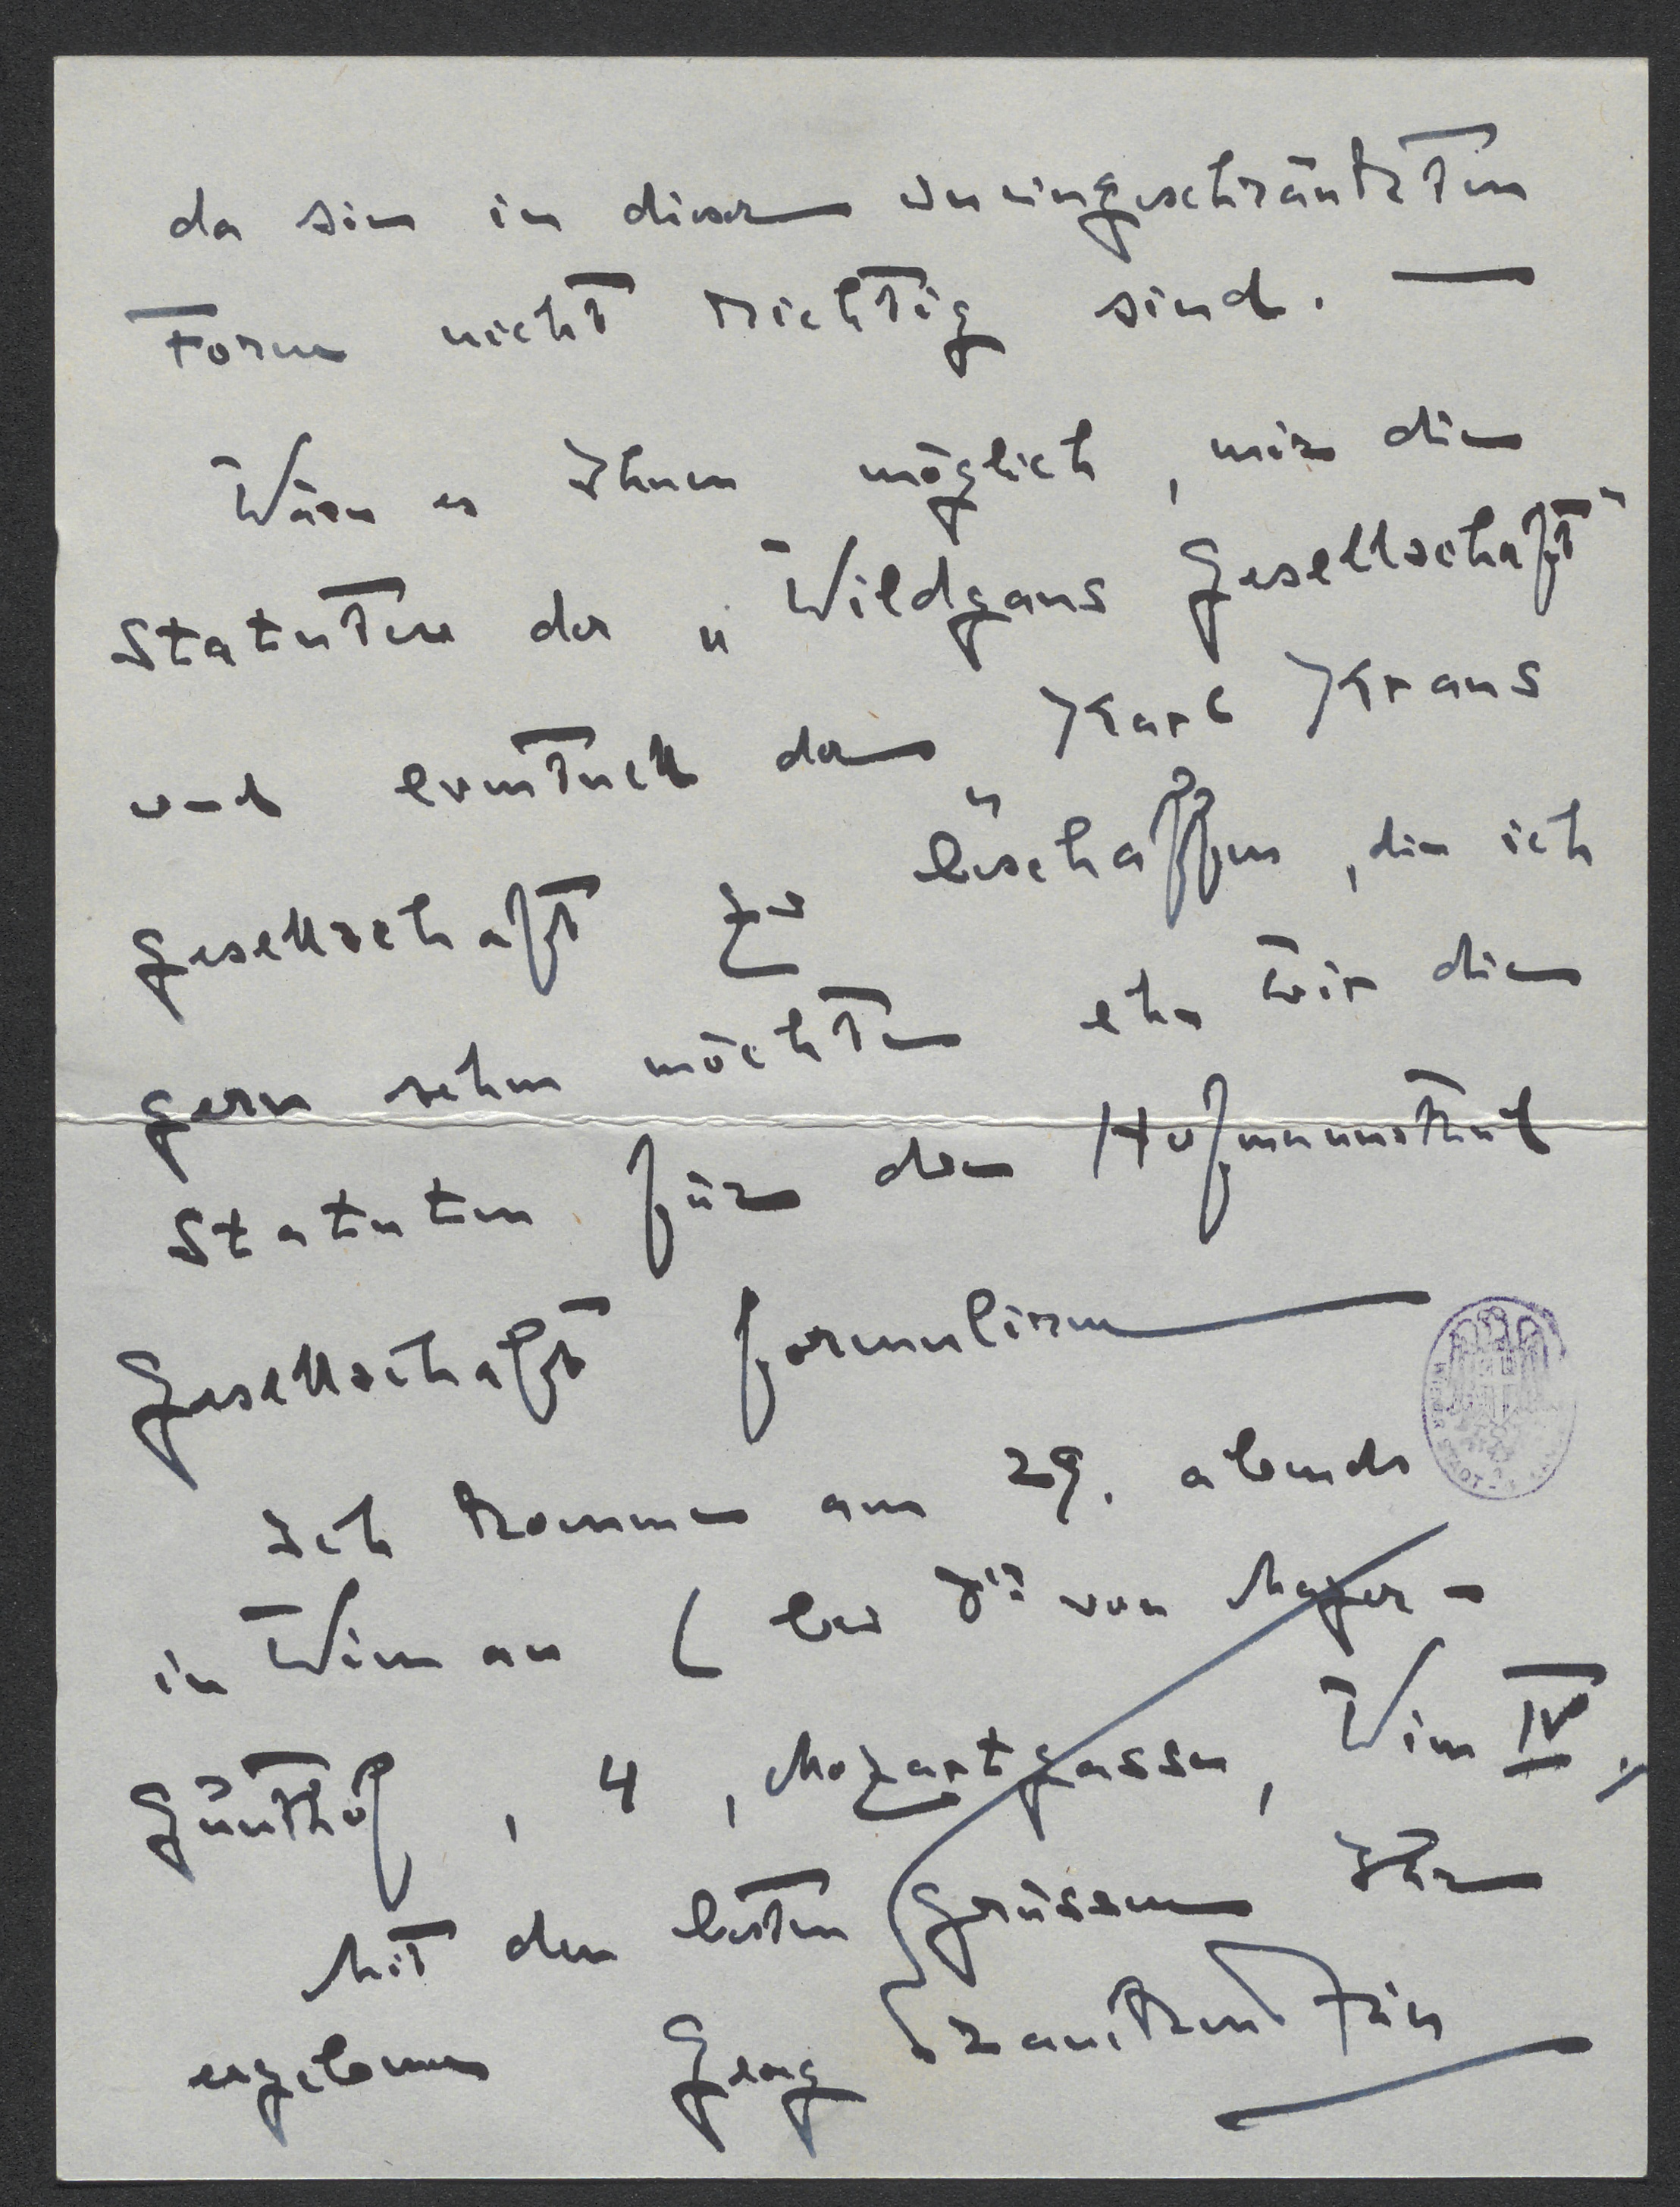 da sie in dieser uneingeschränkten
Form nicht richtig sind. —
Wäre es Ihnen möglich, mir die
Statuten der „Wildgans Gesellschaft"
und eventuell der „Karl Kraus
Gesellschaft" zu beschaffen, die ich
gern sehen möchte ehe wir die
Statuten für die Hofmannsthal
Gesellschaft formulieren
Ich komme am 29. abends
in Wien an (bei Fr. von Mayer-
Günthof, 4, Mozartgasse, Wien IV.)
Mit den besten Grüssen Ihr
ergebener Georg Franckenstein